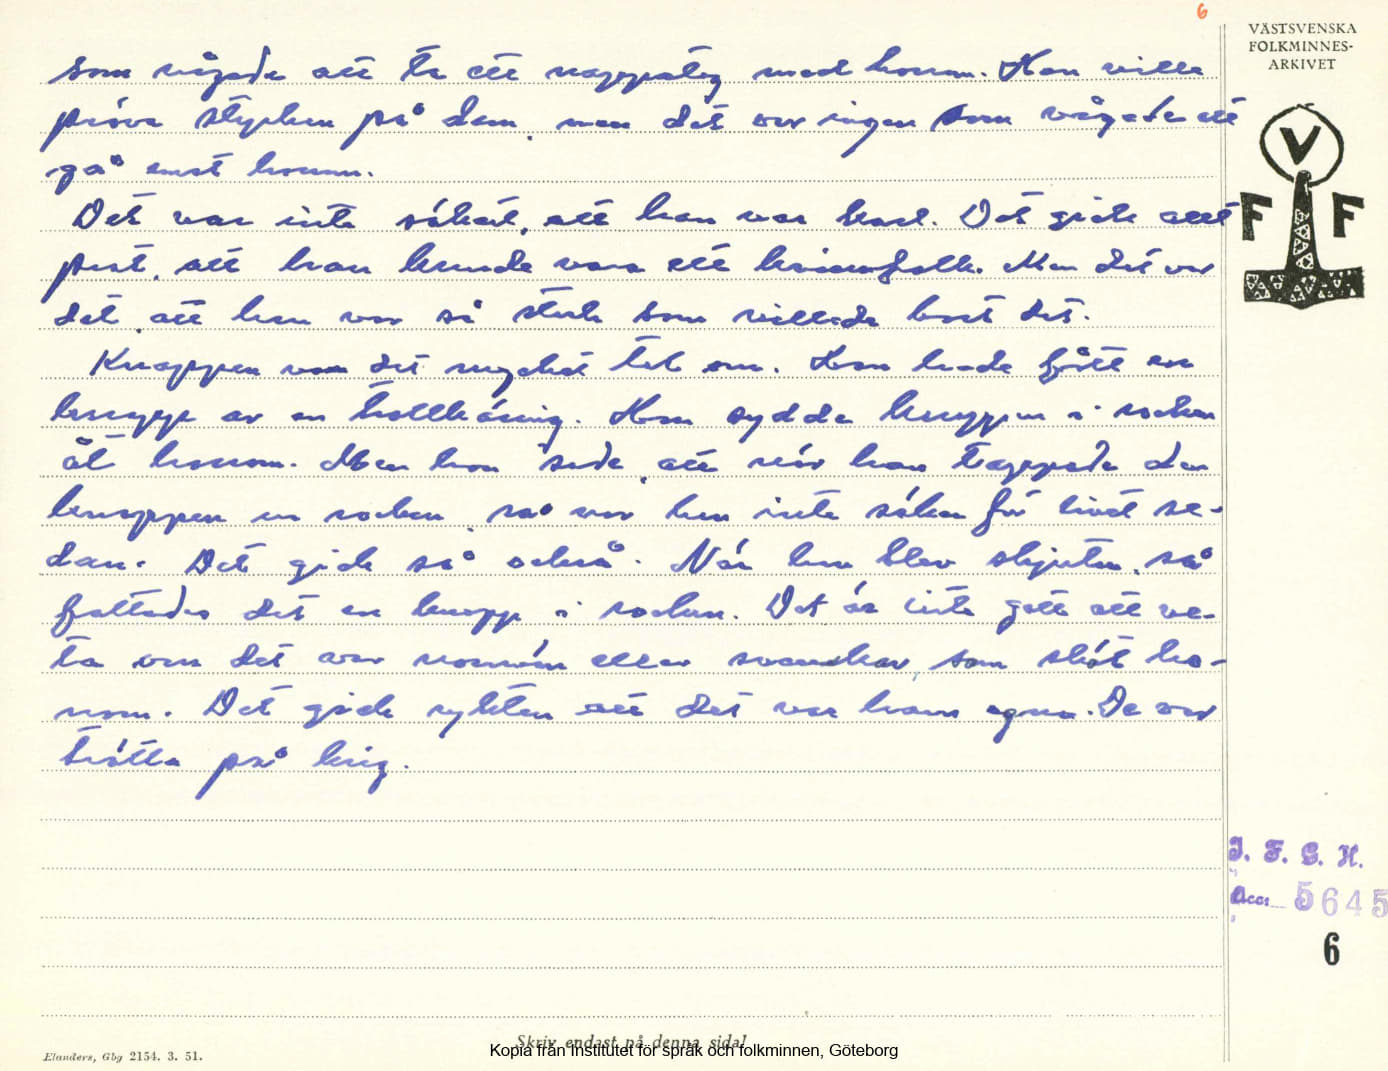 6
VÄSTSVENSKA
FOLKMINNES-
ARKIVET
V
F F
som vågade att ta ett nappatag med honom. Han ville
pröva styrkan på dem, men det var ingen som vågade att
gå emot honom.
Det var inte säkert, att han var karl. Det gick
prat, att han kunde vara ett kvinnfolk. Men det var
det, att han var så stark som villade bort det.
Knappen var det mycket tal om. Han hade fått en
knapp av en trollkäring. Hon sydde knappen i rocken
åt honom. Men hon sade, att när han tappade den
knappen ur rocken, så var han inte säker för livet se-
dan. Det gick så också. När han blev skjuten, så
fattades det en knapp i rocken. Det är inte gott att ve-
ta om det var norrmän eller svenskar, som sköt ho-
nom. Det gick rykten att det var hans egna. De var
trötta på krig.
I. F. G. H.
Acc: 5645
6
Skriv endast på denna sida!
Kopia från Institutet för språk och folkminnen, Göteborg
Elanders, Gbg 2154. 3. 51.